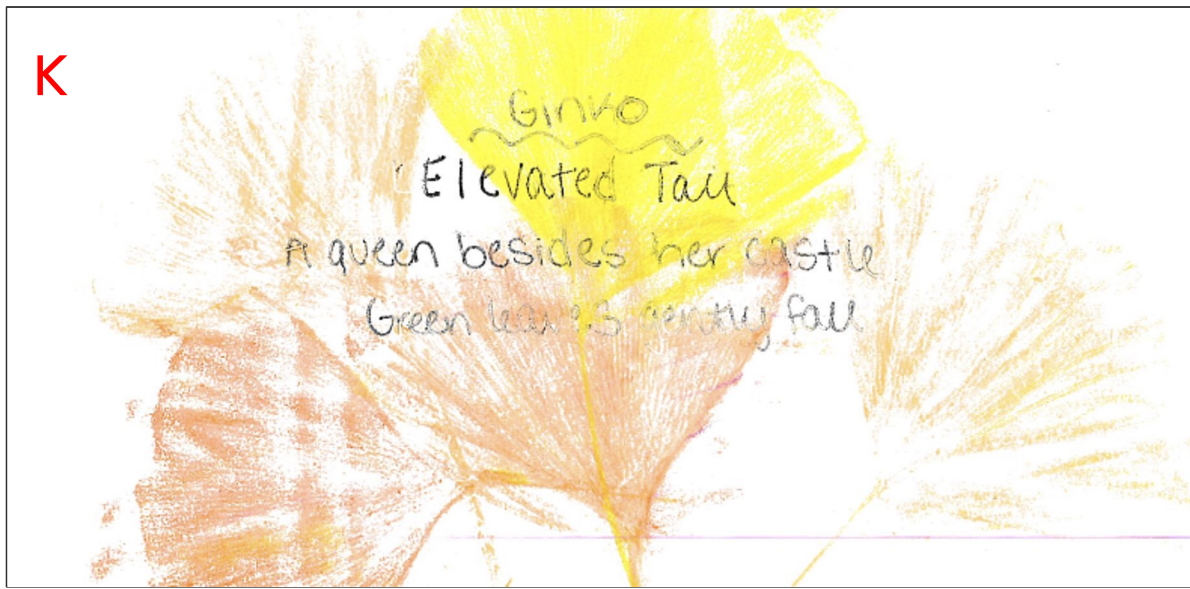 K
Ginko
Elevated Tall
A queen besides her castle
Green leaves gently fall